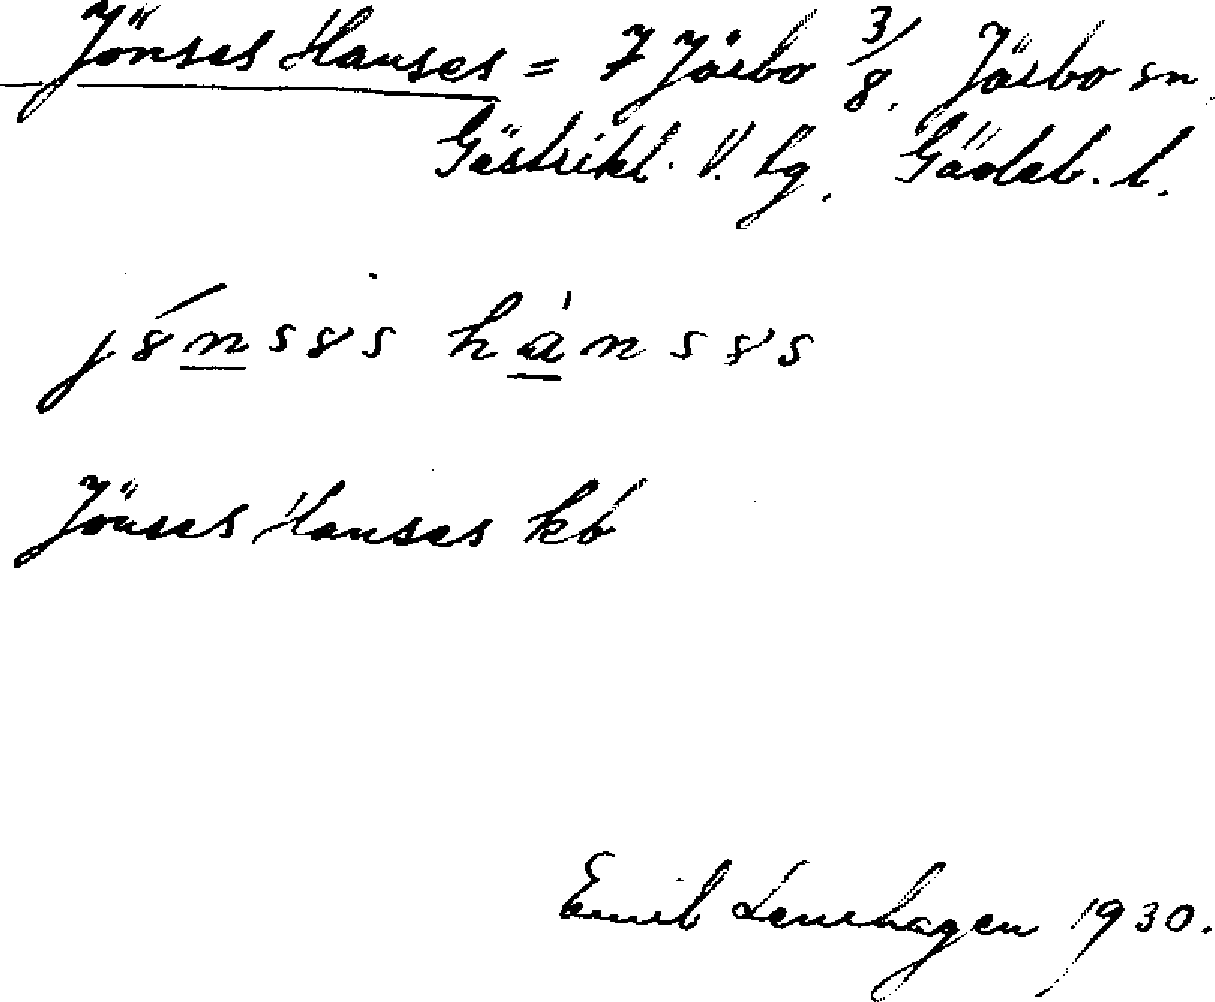 Jönses Hanses = 7 Järbo 3/8. Järbo sn.
Gästrikl. V. tg. Gävleb. l.
Jönses Hanses kb
Emil Lenhagen 1930.